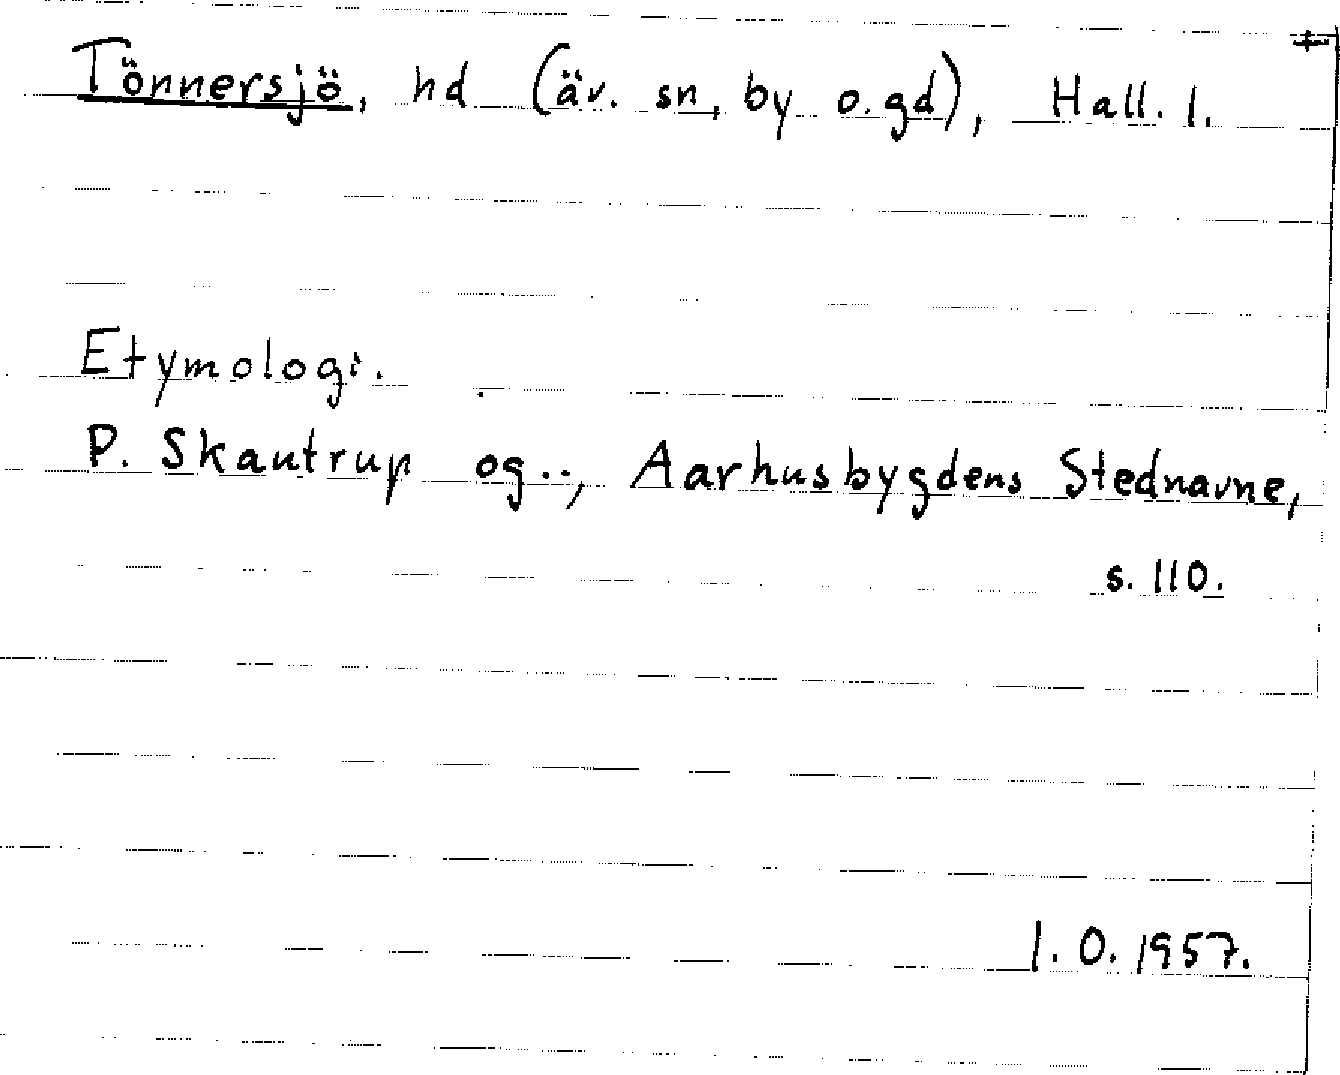 +
Tönnersjö, hd (äv. sn, by o. gd), Hall. l.
Etymologi.
P. Skautrup og.., Aarhusbygdens Stednavne,
s. 110.
I. O. 1957.